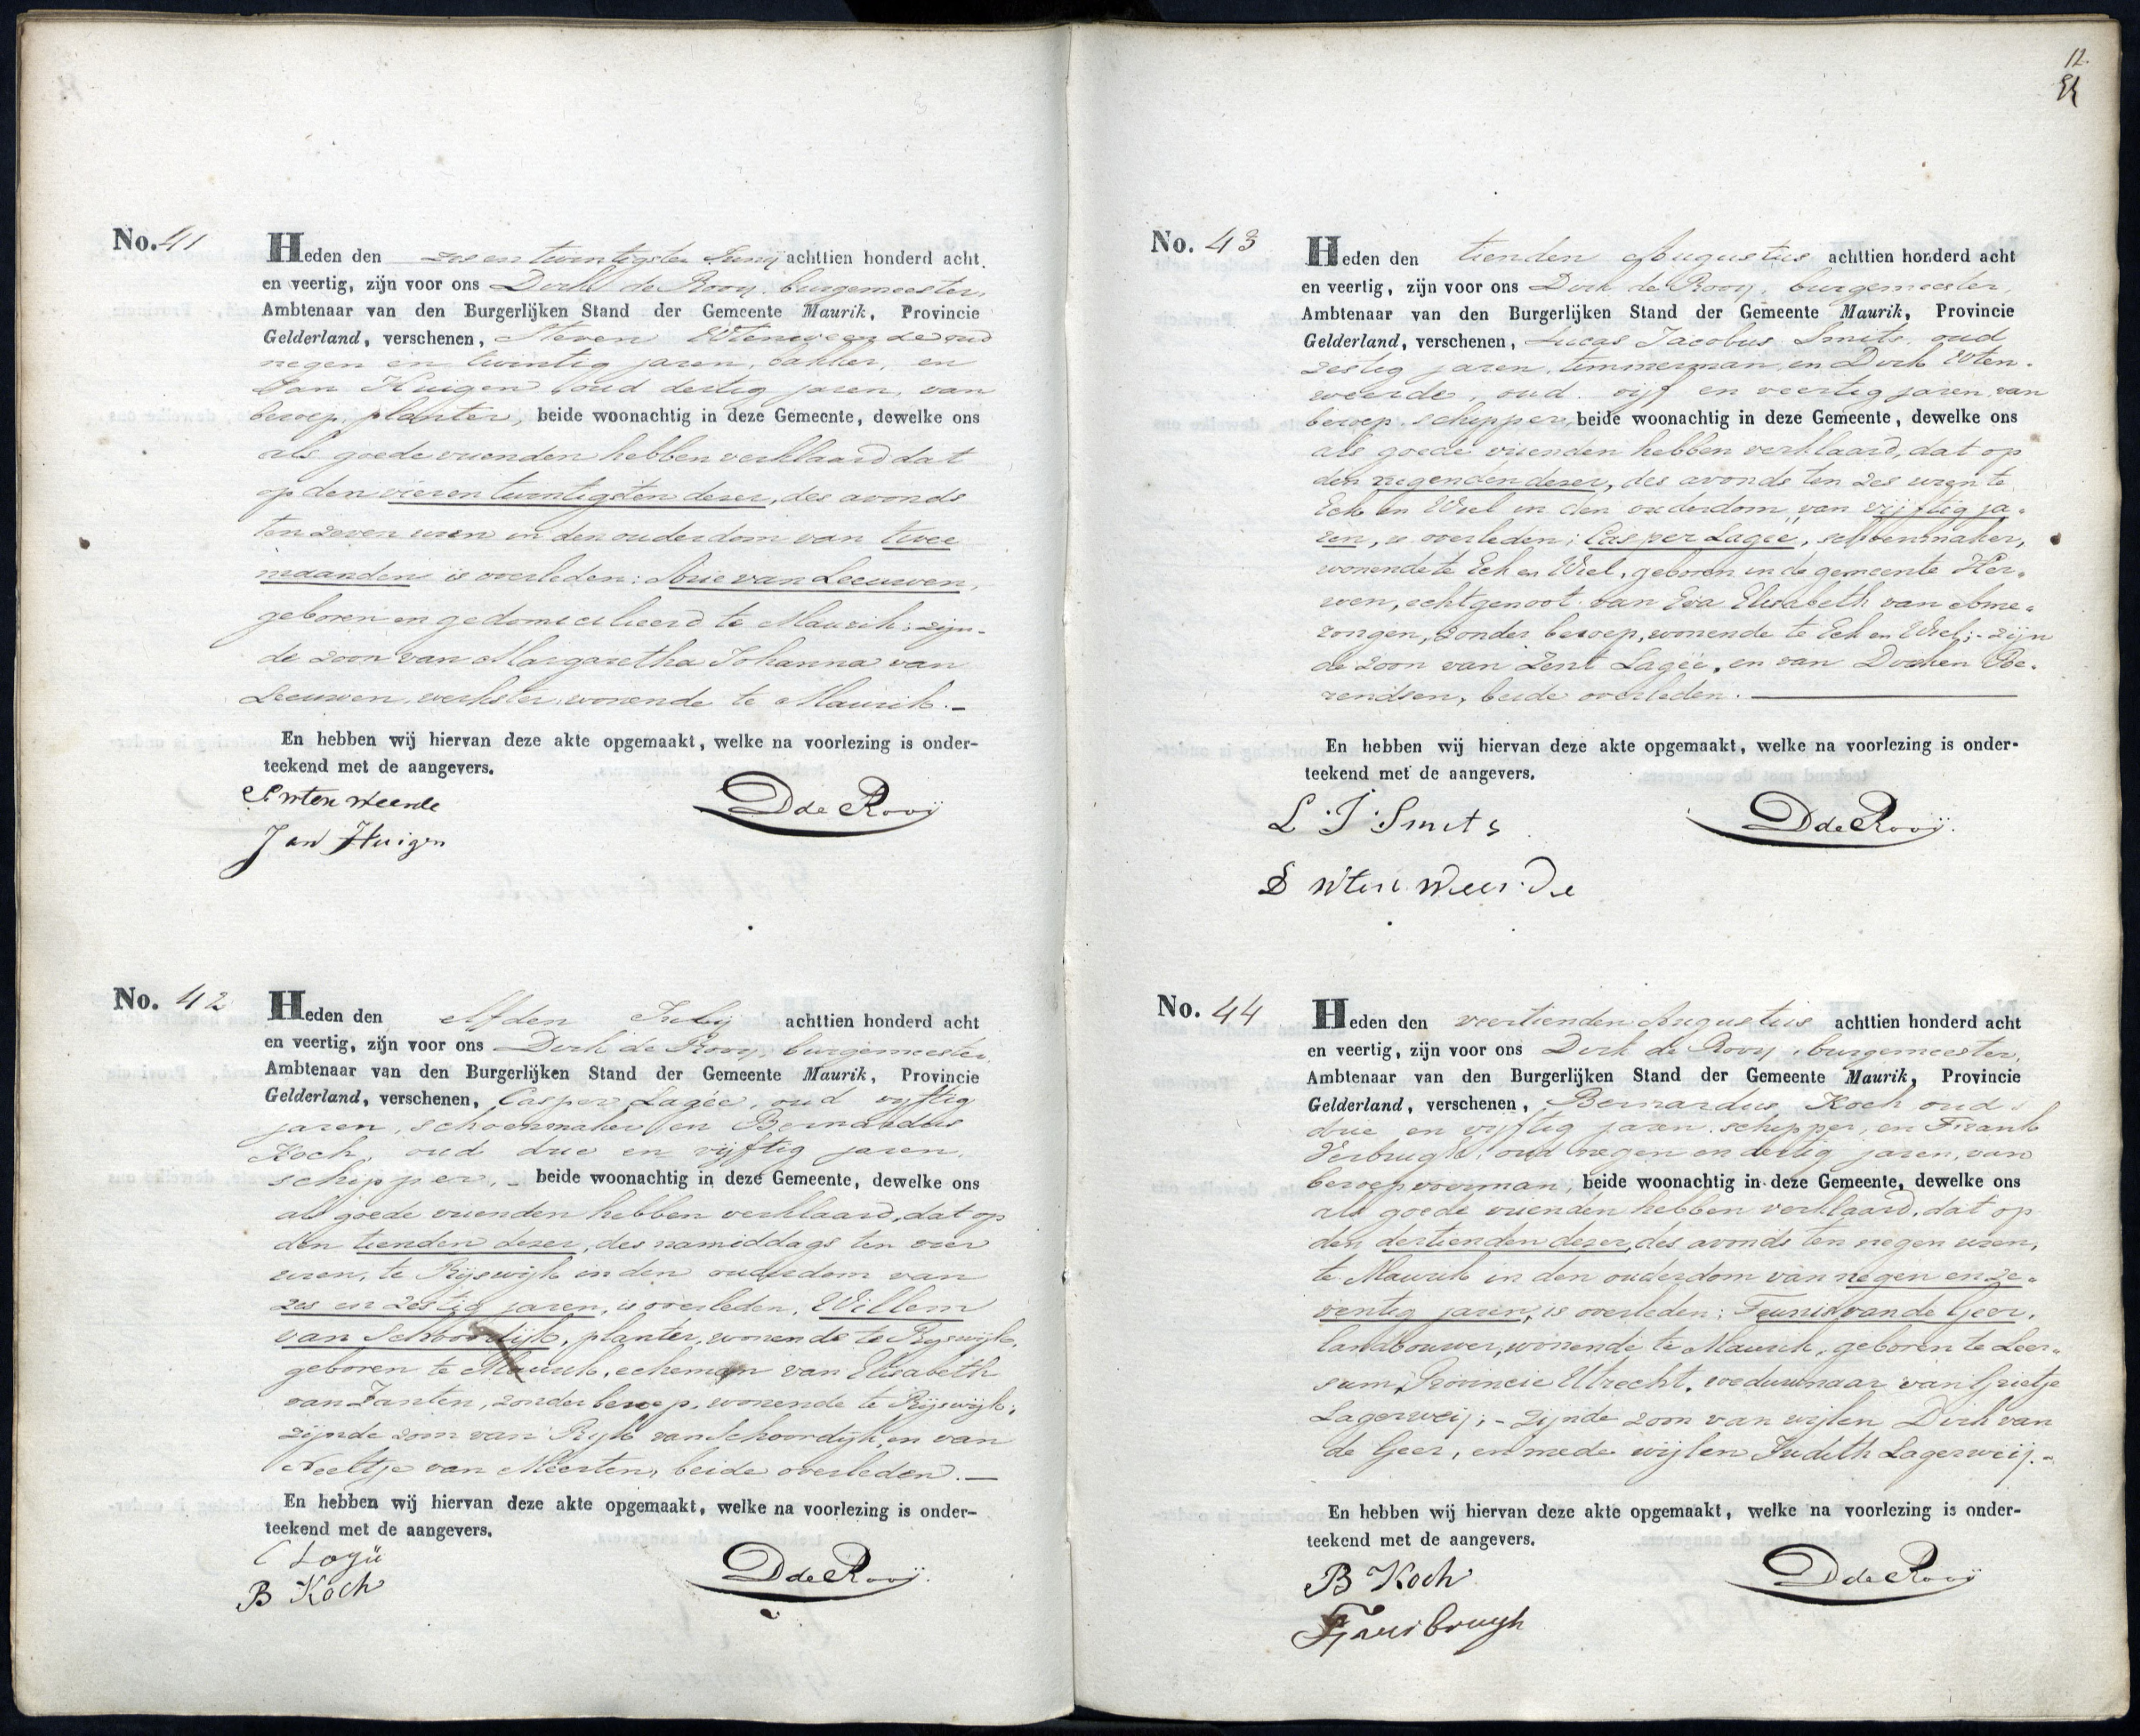 No. 41
Heden den zes en twintigsten Junij achttien honderd acht
en veertig, zijn voor ons Dirk de Rooy, burgemeester,
Ambtenaar van den Burgerlijken Stand der Gemeente Maurik, Provincie
Gelderland, verschenen, Steven Utenweerde oud
negen en twintig jaren, bakker, en
Jan Huigen, oud dertig jaren, van
beroep planter, beide woonachtig in deze Gemeente, dewelke ons
als goede vrienden hebben verklaard dat
op den vier en twintigsten dezer, des avonds
ten zeven uren in den ouderdom van twee
maanden is overleden: Arie van Leeuwen,
geboren en gedomicilieerd te Maurik; zijn-
de zoon van Margaretha Johanna van
Leeuwen, werkster, wonende te Maurik.-
En hebben wij hiervan deze akte opgemaakt, welke na voorlezing is onder-
teekend met de aangevers.
S Wten weerde
D de Rooij
Jan Huigen
No. 42
Heden den elfden Julij achttien honderd acht
en veertig, zijn voor ons Dirk de Rooy, burgemeester,
Ambtenaar van den Burgerlijken Stand der Gemeente Maurik, Provincie
Gelderland, verschenen, Casper Lagée, oud vyftig
jaren, schoenmaker, en Bernardus
Koch, oud drie en vijftig jaren,
schipper, beide woonachtig in deze Gemeente, dewelke ons
als goede vrienden hebben verklaard, dat op
den tienden dezer, des namiddags ten vier
uren, te Rijswijk in den ouderdom van
zes en zestig jaren, is overleden, Willem
van Schoordijk, planter, wonende te Ryswijk,
geboren te Maurik, echeman van Elisabeth
van Zanten, zonder beroep, wonende te Rijswijk;
zijnde zoon van Ryk van Schoordijk, en van
Neeltje van Meerten, beide overleden.-
En hebben wij hiervan deze akte opgemaakt, welke na voorlezing is onder-
teekend met de aangevers.
C Lagü
D de Rooij.
B Koch
12.
No. 43
Heden den tienden Augustus achttien honderd acht
en veertig, zijn voor ons Dirk de Rooy, burgemeester,
Ambtenaar van den Burgerlijken Stand der Gemeente Maurik, Provincie
Gelderland, verschenen, Lucas Jacobus Smits, oud
zestig jaren, timmerman, en Dirk Uten-
weerde, oud vijf en veertig jaren, van
beroep schipper, beide woonachtig in deze Gemeente, dewelke ons
als goede vrienden hebben verklaard, dat op
den negenden dezer, des avonds ten zes uren te
Eck en Wiel in den ouderdom van vijftig ja-
ren, is overleden; Casper Lagée, schoenmaker,
wonende te Eck en Wiel, geboren in de gemeente Her-
wen, echtgenoot van Eva Elisabeth van Ame-
rongen, zonder beroep, wonende te Eck en Wiel;- zijn
de zoon van Zent Lagée, en van Dorken Be-
rendsen, beide overleden.
En hebben wij hiervan deze akte opgemaakt, welke na voorlezing is onder-
teekend met de aangevers.
L. J. Smits
D de Rooij.
D Wten weerde
No. 44
Heden den veertienden Augustus achttien honderd acht
en veertig, zijn voor ons Dirk de Rooy, burgemeester,
Ambtenaar van den Burgerlijken Stand der Gemeente Maurik, Provincie
Gelderland, verschenen, Bernardus Koch oud
drie en vyftig jaren, schipper, en Frank
Verbrugh, oud negen en dertig jaren, van
beroep voerman, beide woonachtig in deze Gemeente, dewelke ons
als goede vrienden hebben verklaard, dat op
den dertienden dezer, des avonds ten negen uren,
te Maurik in den ouderdom van negen en ze-
ventig jaren, is overleden; Teunis van de Geer,
landbouwer, wonende te Maurik, geboren te Leer-
sum, Provincie Utrecht, weduwnaar van Grietje
Lagerweij;- zijnde zoon van wijlen Dirk van
de Geer, en mede wijlen Judith Lagerweij.-
En hebben wij hiervan deze akte opgemaakt, welke na voorlezing is onder-
teekend met de aangevers.
B Koch
D de Rooij
F Verbrugh